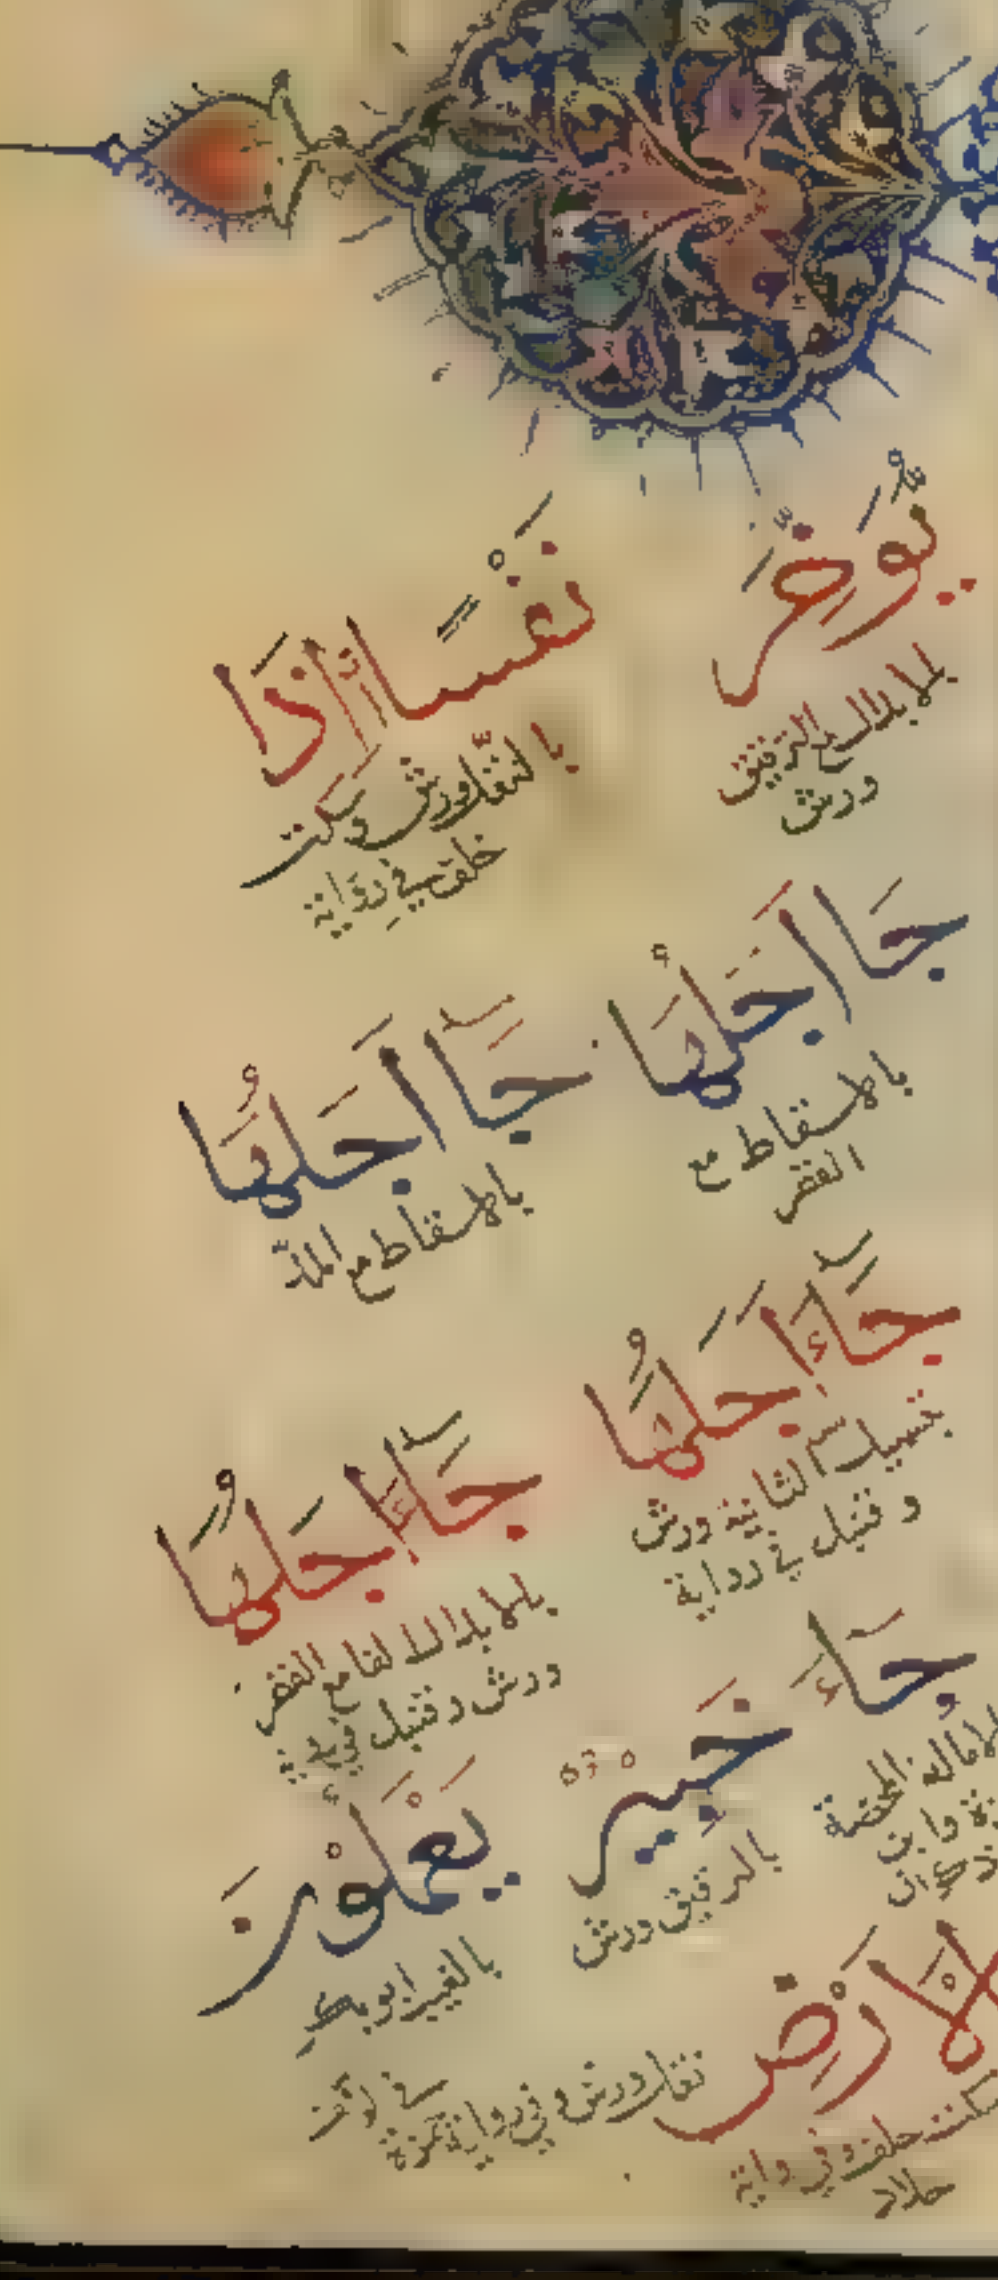 يُؤَخِّرَ
بالابدال مع الترقيق
ورش
نَفْسًا أِذَا
بالنقل ورش وسكت
خلف في رواية
جَا اَجَلُهَا
بالاسقاط مع
القصر
جَآ اَجَلُهَا
بالاسقاط مع المدّ
جَآءَ اجَلُهَا
بتسهيل الثانية ورش
و قنبل في رواية
جَآءَ اجَلُهَا
بالابدال الفا مع القصر
ورش و قنبل في رواية
جَآءَ
بالامالة المحضة
حمزة وابن
ذكوان
خَبِير
بالترقيق ورش
يَعْمَلُوْنَ
بالغيب ابو بكر
لْاَرْضِ
سكت خلف وفي رواية
خلاد
نقل ورش وفي رواية حمزة
في الوقف